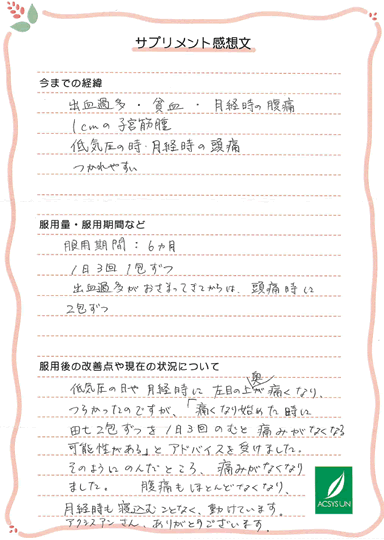 サプリメント感想文
今までの経緯
出血過多・貧血・月経時の腹痛
1cmの子宮筋腫
低気圧の時・月経時の頭痛
つかれやすい
服用量・服用期間など
服用期間：6ヵ月
1日3回1包ずつ
出血過多がおさまってきてからは、頭痛時に
2包ずつ
服用後の改善点や現在の状況について
低気圧の日や月経時に左目の上が奥が痛くなり、
つらかったのですが、「痛くなり始めた時に
田七2包ずつを1日3回のむと痛みがなくなる
可能性がある」とアドバイスを受けました。
そのようにのんだところ、痛みがなくなり
ました。腹痛もほとんどなくなり、
月経時も寝込むことなく、動けています。
アクシスアンさん、ありがとうございます。
ACSYS UN